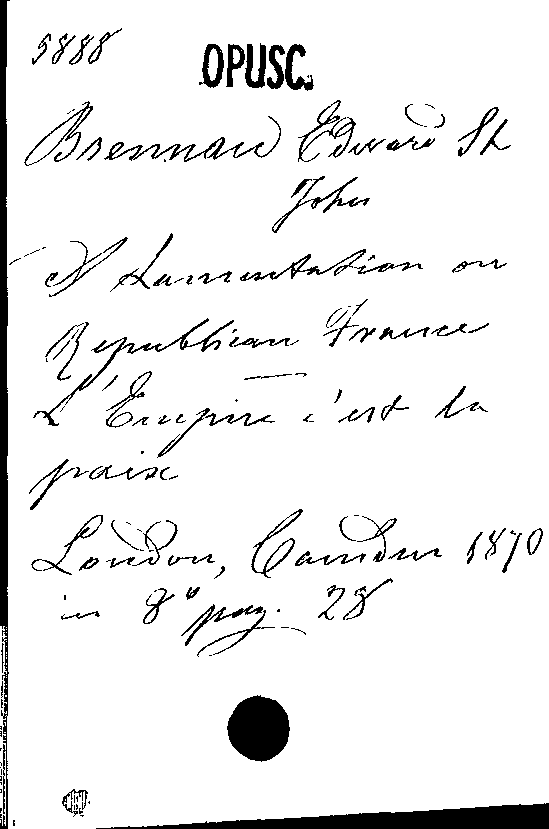 5888
OPUSC.
Brennan Edward St
John
A Lamentation on
Republican France
L'Empire c'est la
paix
London, Camden 1870
in 8° pag. 28